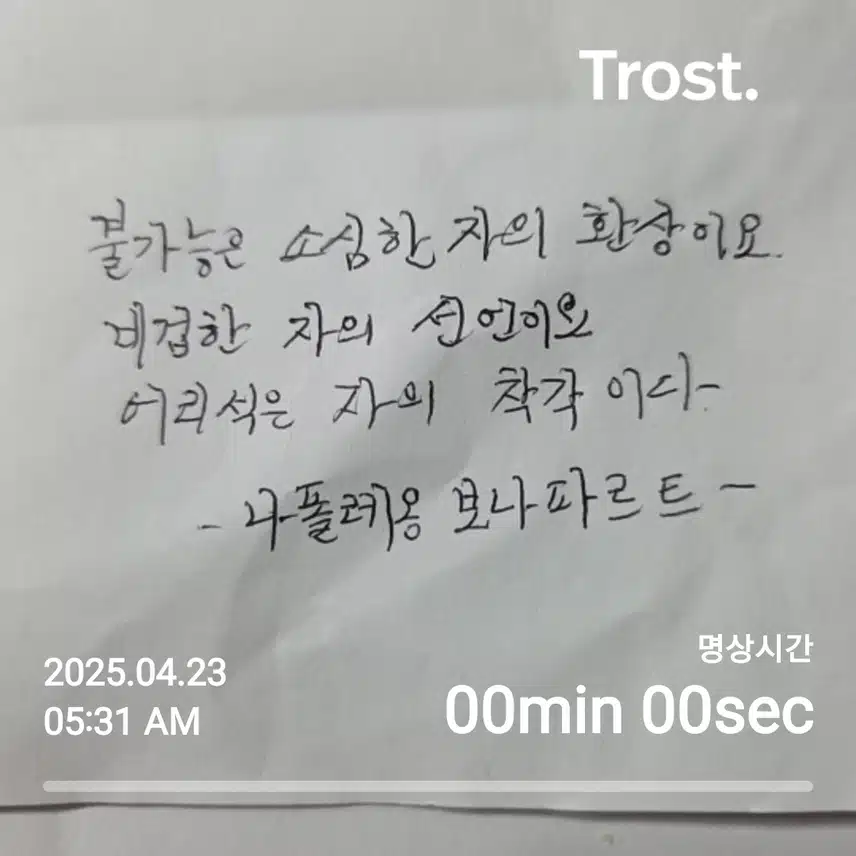 Trost.
불가능은 소심한 자의 환상이요.
비겁한 자의 선언이요
어리석은 자의 착각이다-
- 나폴레옹 보나파르트 -
명상시간
2025.04.23
00min 00sec
05:31 AM